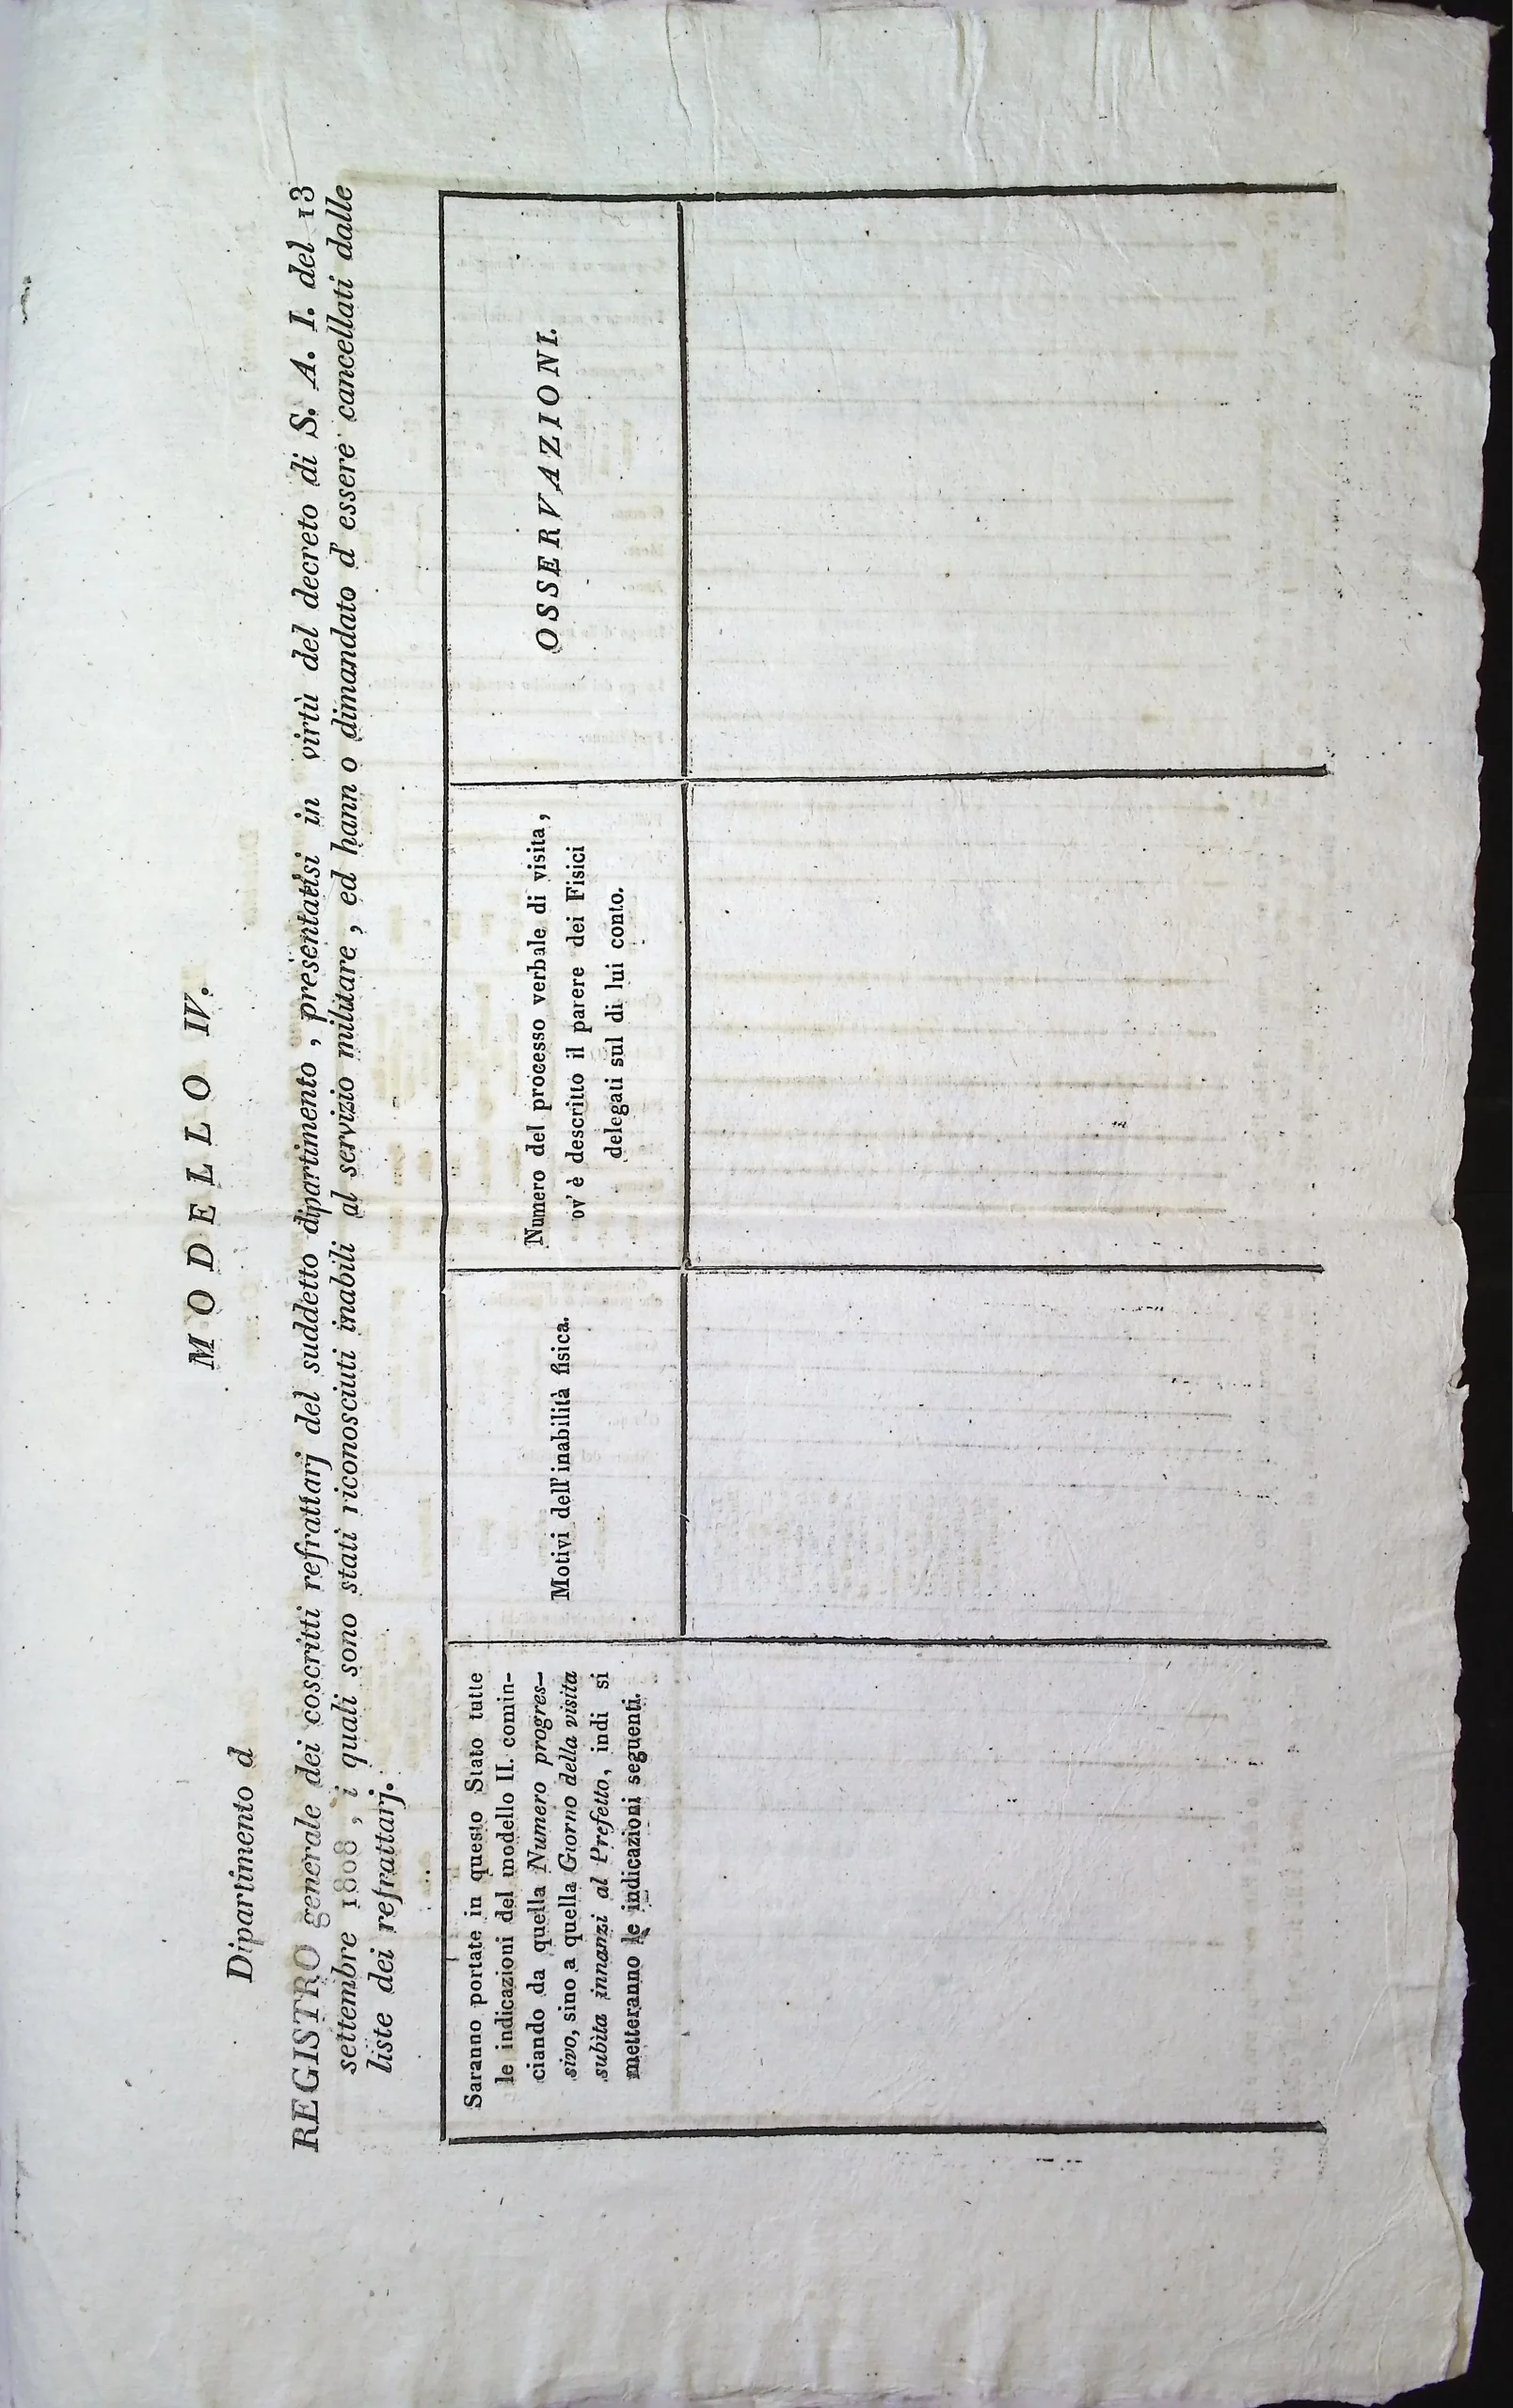 MODELLO IV.
Dipartimento d
REGISTRO generale dei coscritti refrattarj del suddetto dipartimento, presentatisi in virtù del decreto di S. A. I. del 13
settembre 1808, i quali sono stati riconosciuti inabili al servizio militare, ed hanno dimandato d'essere cancellati dalle
liste dei refrattarj.
Saranno portate in questo Stato tutte
le indicazioni del modello II. comin-
ciando da quella Numero progres-
sivo, sino a quella Giorno della visita
subìta innanzi al Prefetto, indi si
metteranno le indicazioni seguenti.
Motivi dell'inabilità fisica.
Numero del processo verbale di visita,
ov'è descritto il parere dei Fisici
delegati sul di lui conto.
OSSERVAZIONI.